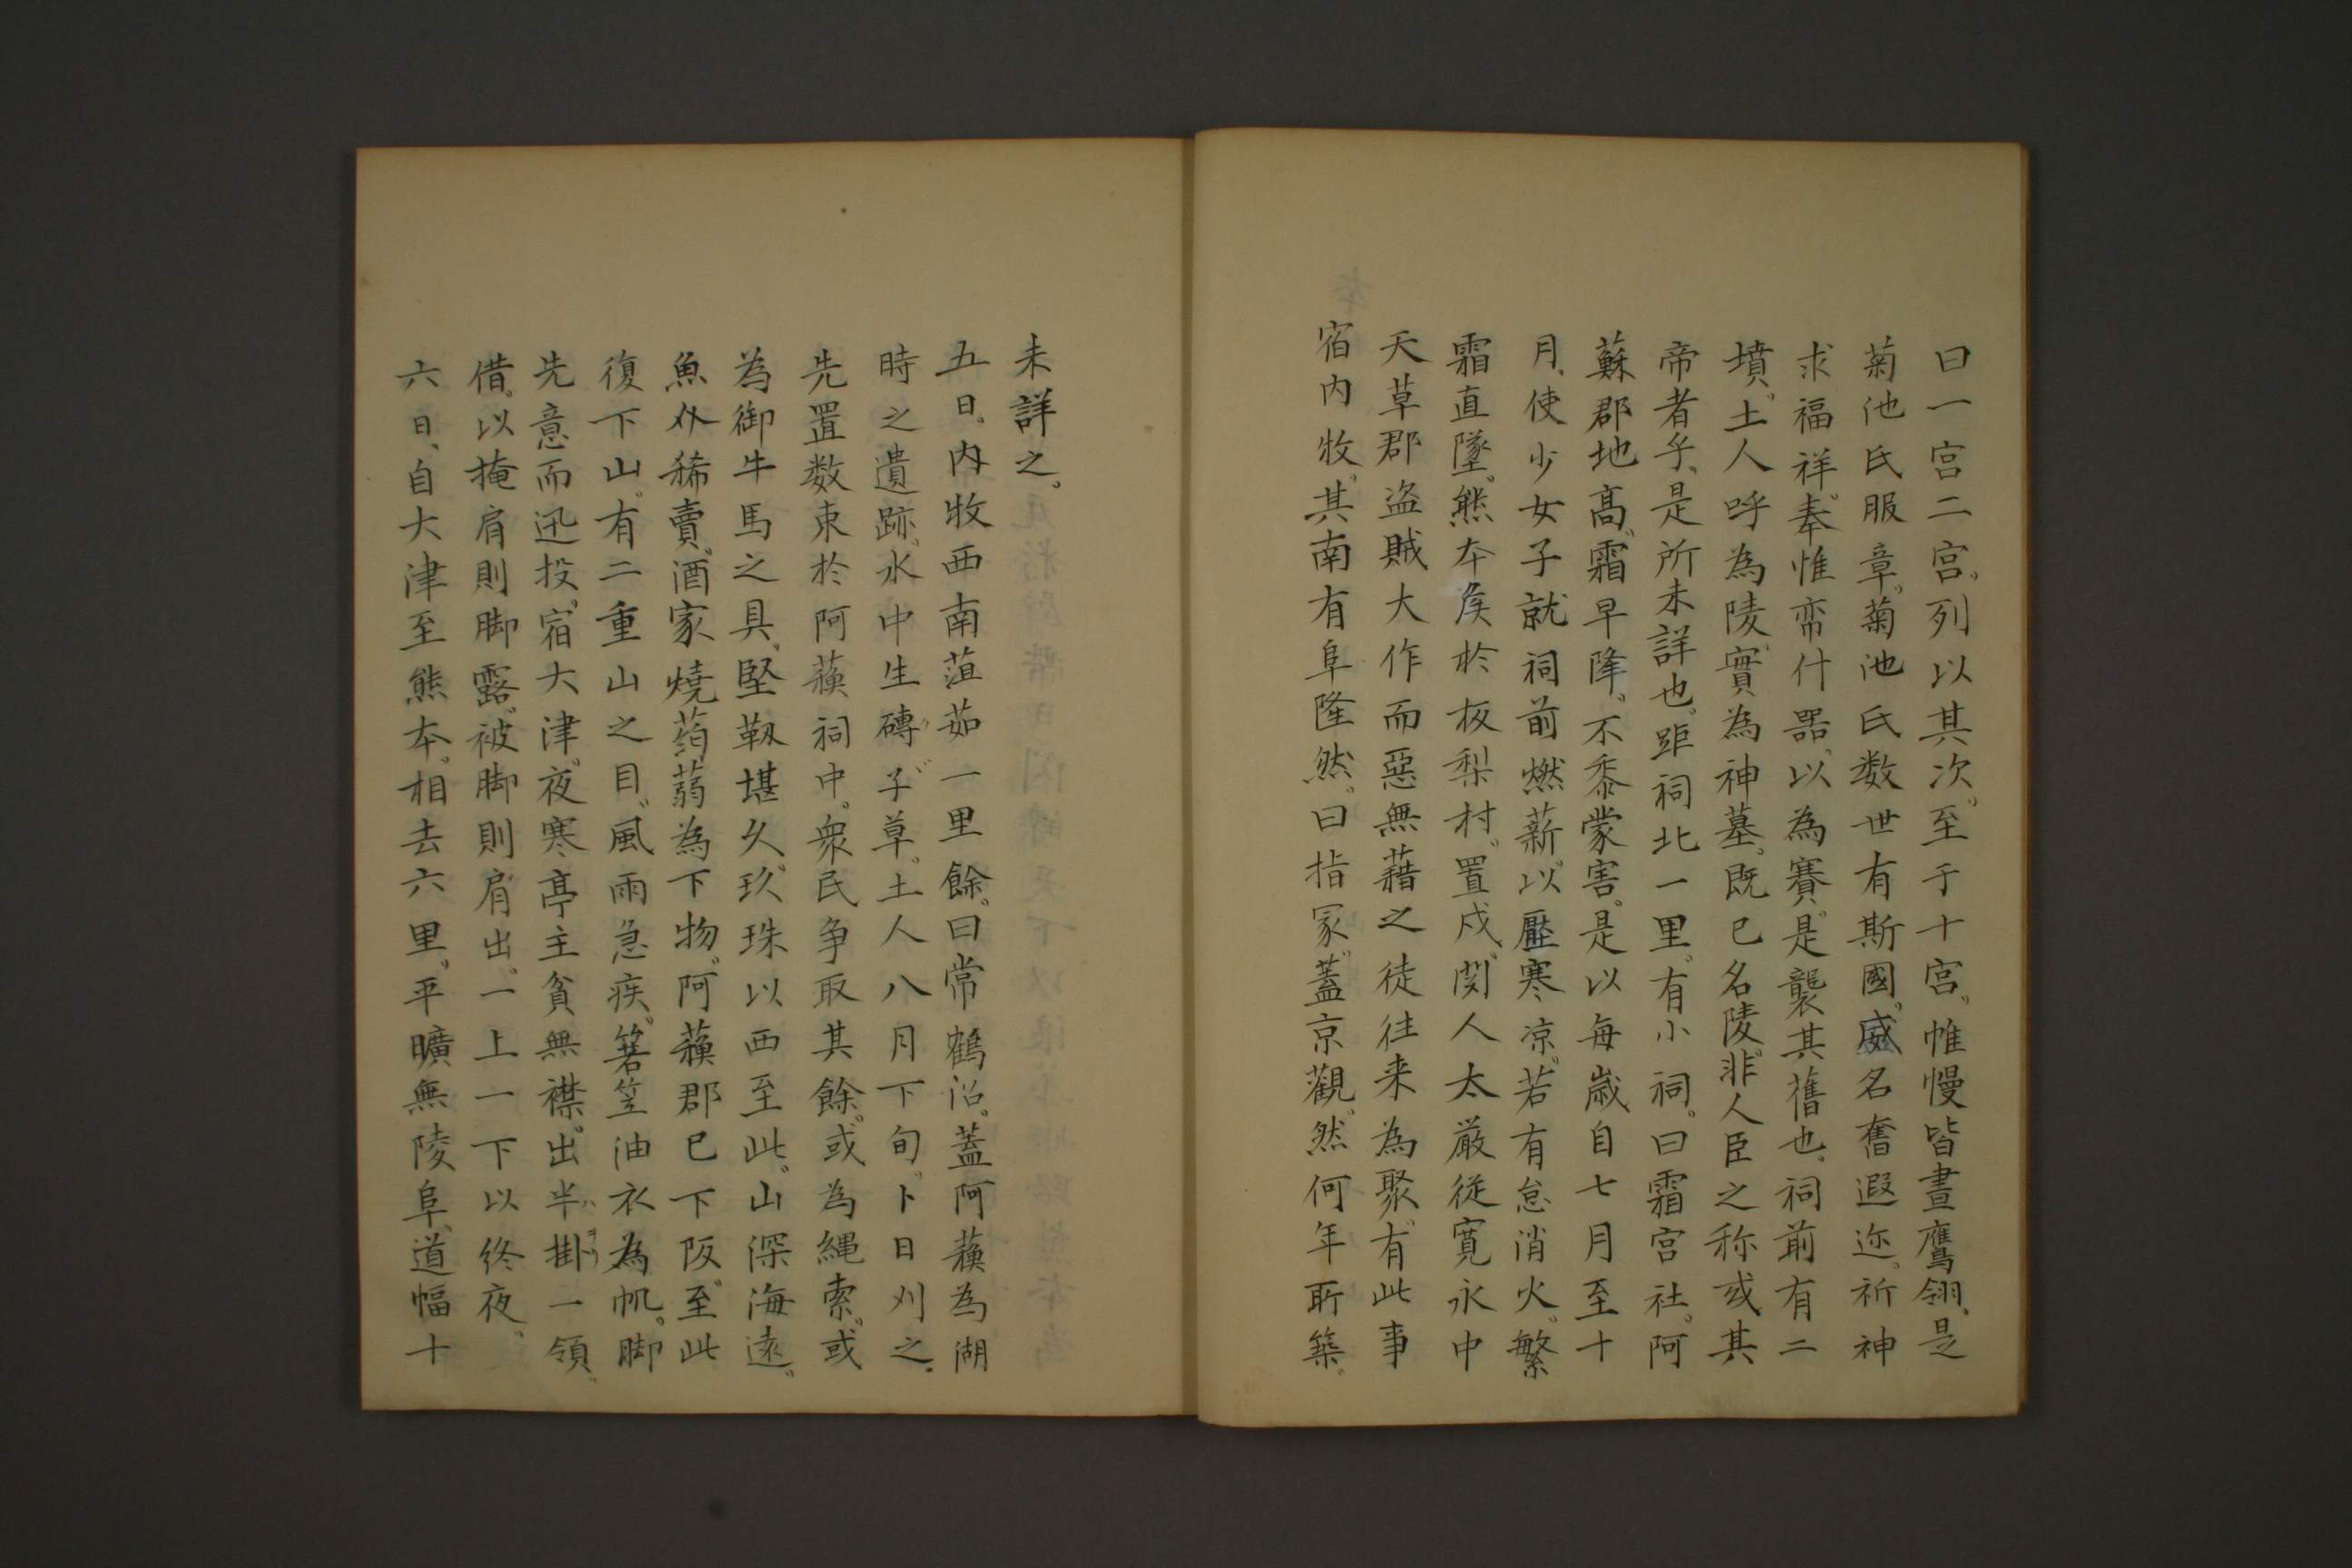 曰一宮二宮。列以其次。至于十宮。帷幔皆畫鷹翎。是
菊池氏服章。菊池氏数世有斯國。威名奮遐迩。祈神
求福祥。奉惟帘什器。以為賽。是襲其舊也。祠前有二
墳。土人呼為陵。實為神墓。既已名陵。非人臣之称或其
帝者乎。是所未詳也。距祠北一里。有小祠。曰霜宮社。阿
蘇郡地高。霜早降。不黍蒙害。是以每歳自七月至十
月。使少女子就祠前燃薪。以壓寒凉。若有怠消火。繁
霜直墜。熊本矦於板梨村。置戍。関人太厳従寛永中
天草郡盗賊大作而惡無藉之徒往来為聚。有此事
宿内牧。其南有阜隆然。曰指冡。蓋京觀。然何年所築。
未詳之。
五日。内牧西南菹茹一里餘。曰常鶴沼。蓋阿蘓為湖
時之遺跡。水中生磚子草。土人八月下旬。卜日刈之。
先置数束於阿蘓祠中。衆民争取其餘。或為縄索。或
為御牛馬之具。堅靱堪久。玖珠以西至此。山深海遠。
魚𠆢稀賣。酒家燒蒟蒻為下物。阿蘓郡已下阪。至此
復下山。有二重山之目。風雨急疾。簑笠油衣為帆。脚
先意而迅投。宿大津。夜寒亭主貧無襟。出半掛一領。
借。以掩肩則脚露。被脚則肩出。一上一下以終夜。
六日。自大津至熊本。相去六里。平曠無陵阜。道幅十